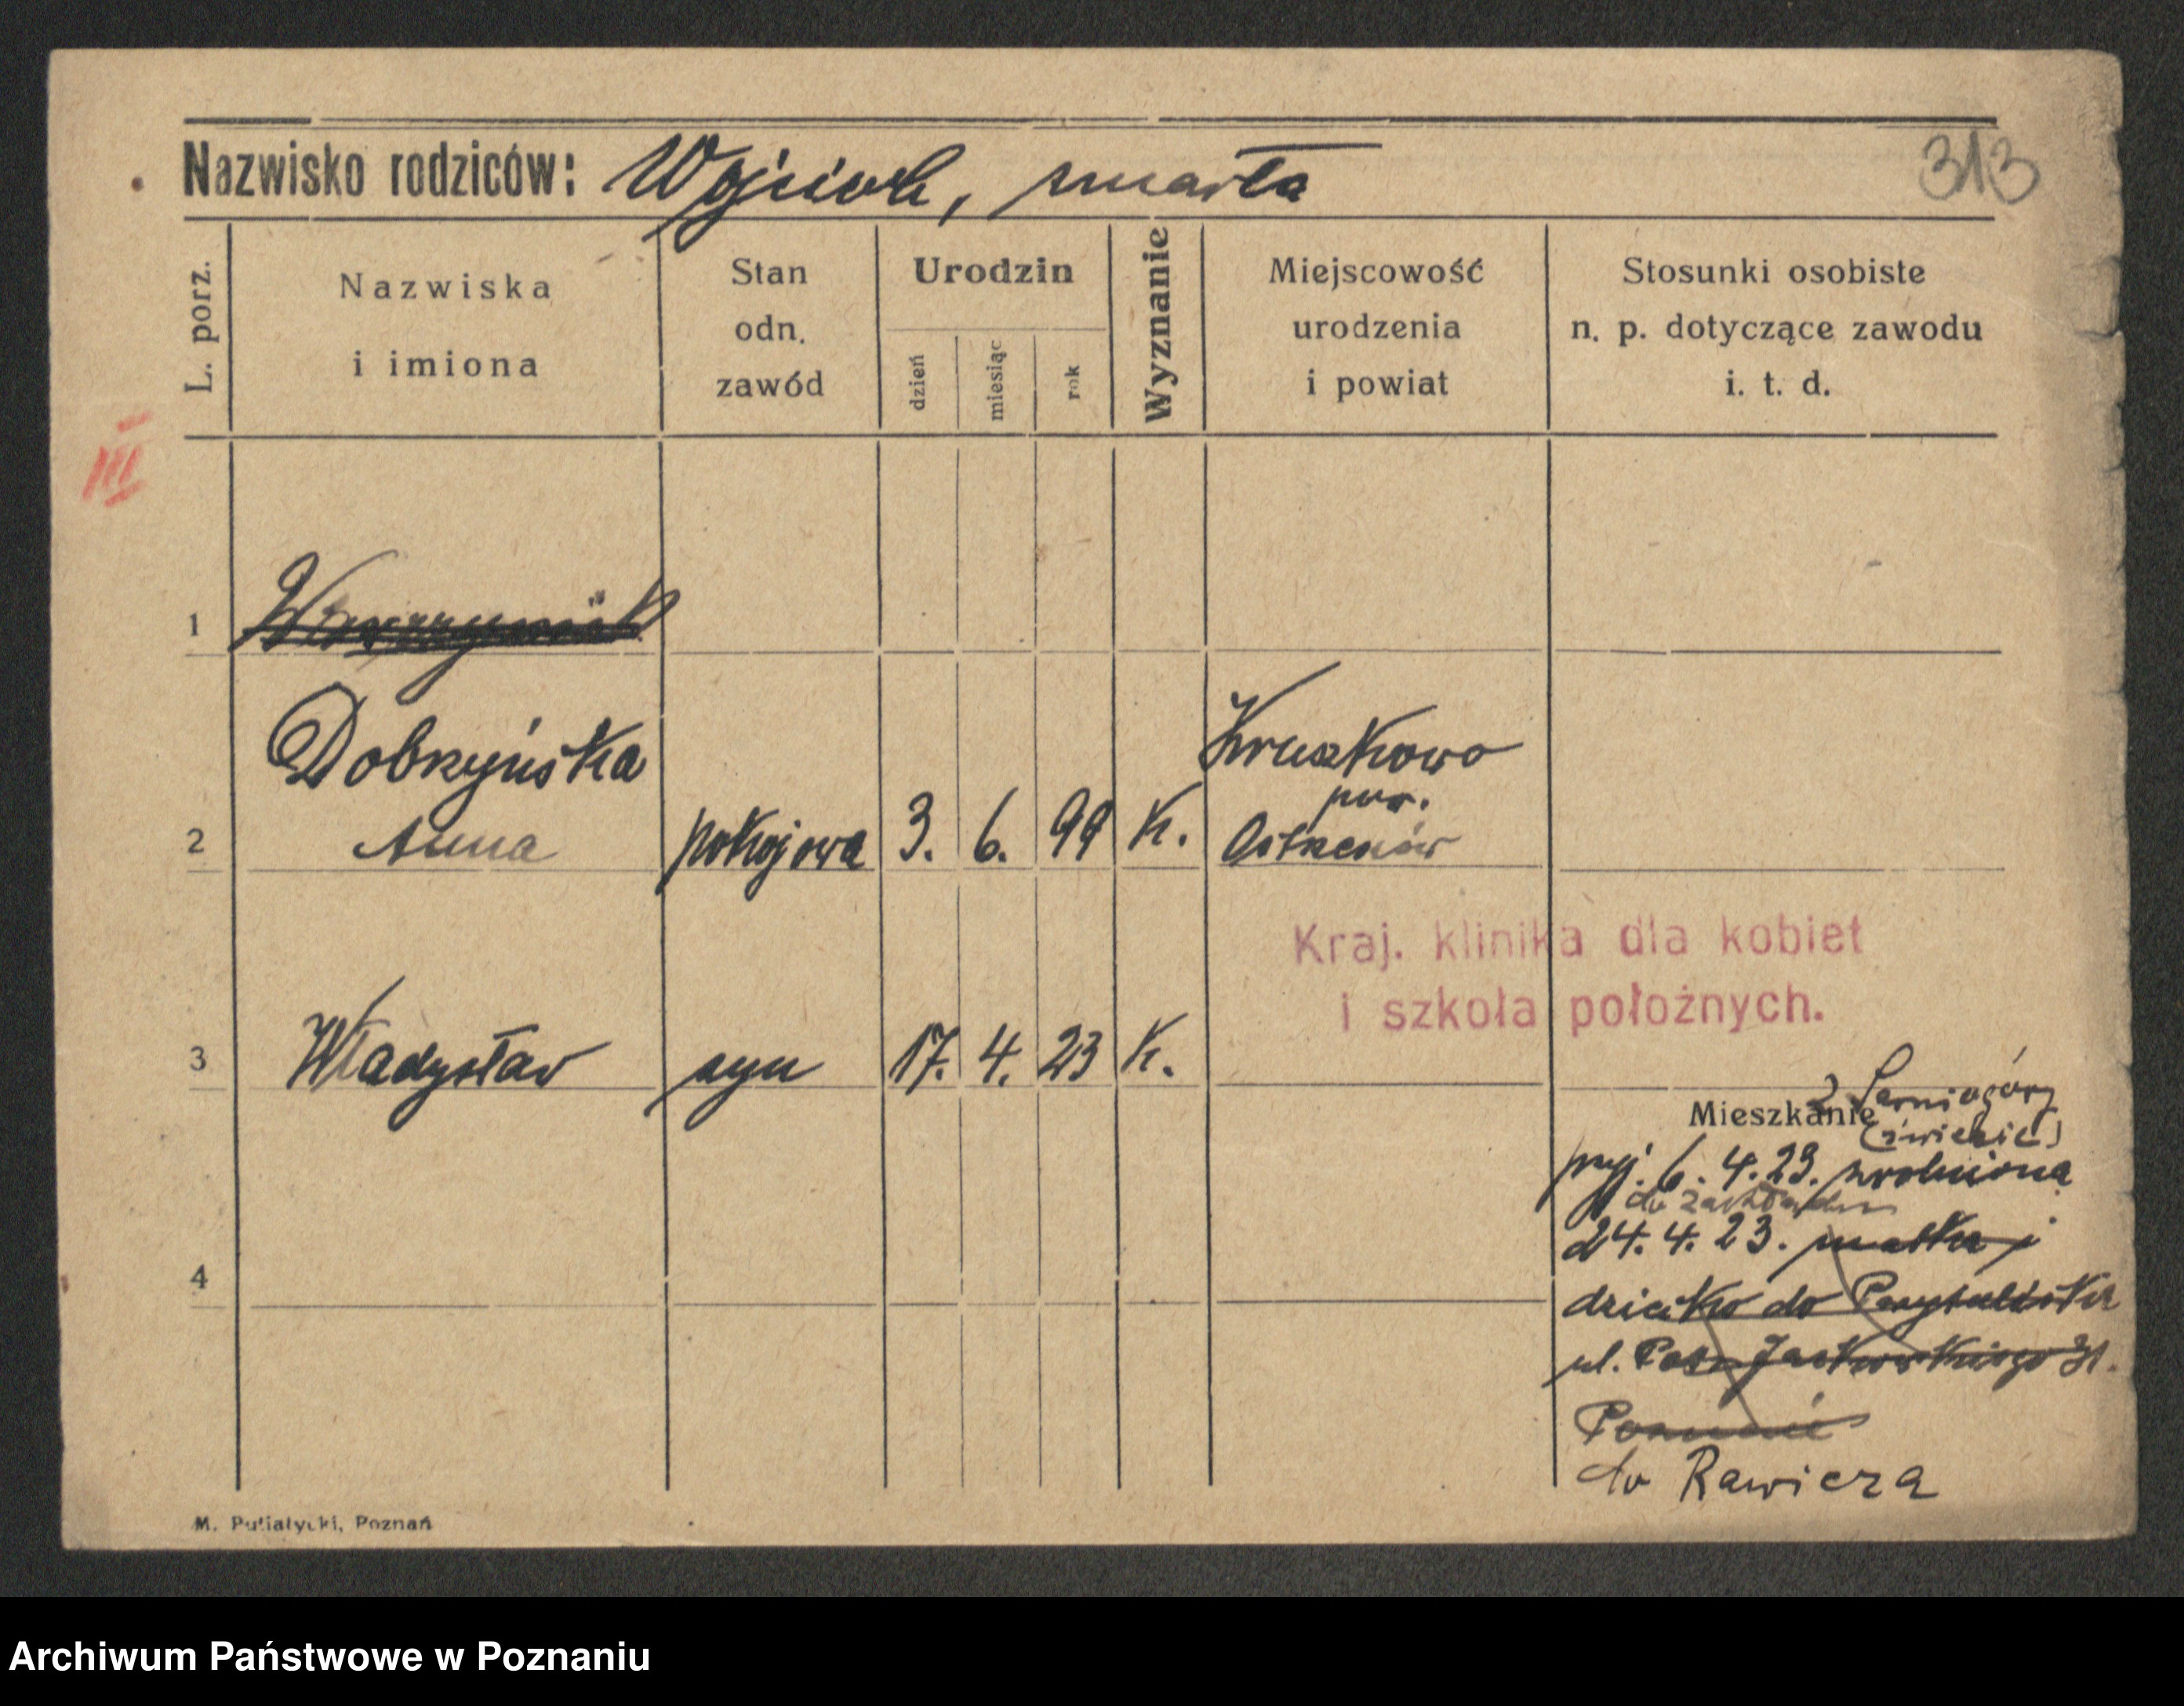 313
Nazwisko rodziców: Wojciech, zmarła
L. porz.
Nazwiska
i imiona
Stan
odn.
zawód
Urodzin
dzień
miesiąc
rok
Wyznanie
Miejscowość
urodzenia
i powiat
Stosunki osobiste
n. p. dotyczące zawodu
i. t. d.
III
1
Dobrzyńska
Kruszkowo
pow.
2 Anna pokojowa 3. 6. 99 K. Ostrzeszów
Kraj. klinika dla kobiet
i szkoła położnych.
3 Władysław syn 17. 4. 23 K.
Mieszkanie
przyj. 6. 4. 23. zwolniona
do zakładu
24. 4. 23. matka i
4
dziecko do
ul. Jackowskiego 31.
Poznań
do Rawicza
M. Putiatycki, Poznań
Archiwum Państwowe w Poznaniu